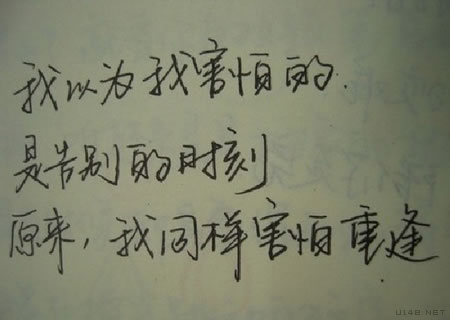 我以为我害怕的.
是告别的时刻
原来，我同样害怕重逢
U148.NET